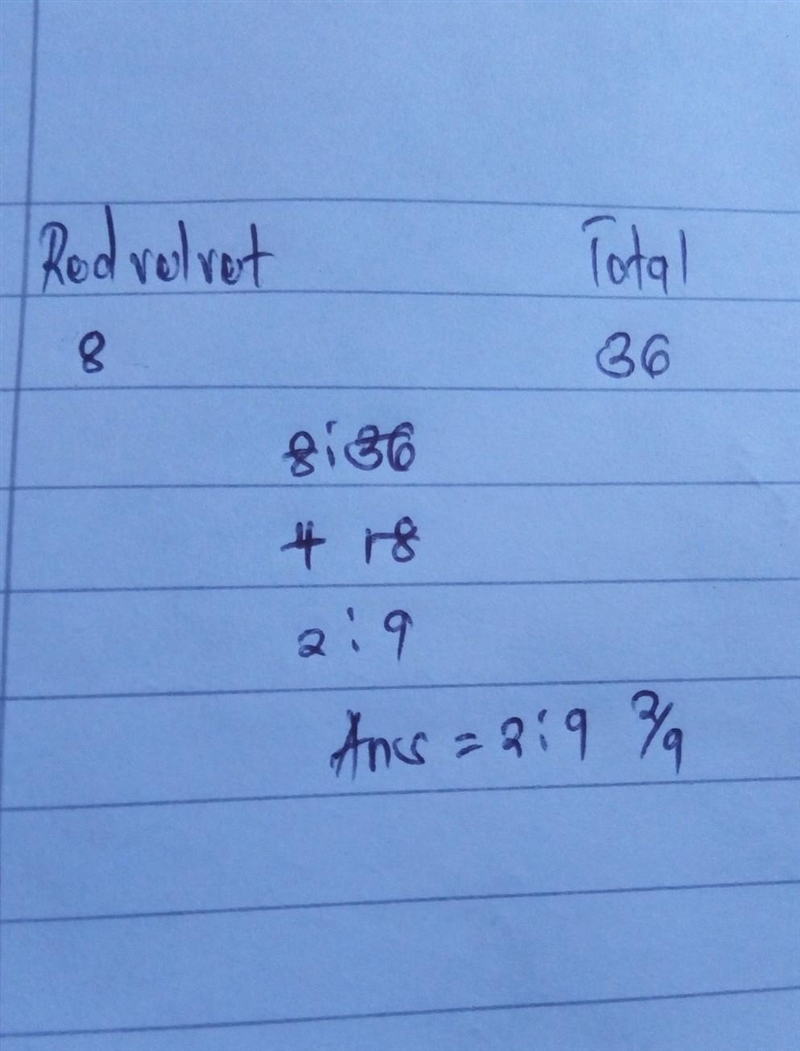 Red velvet Total
8 36
8:36
4 18
2:9
Ans = 2:9 2/9